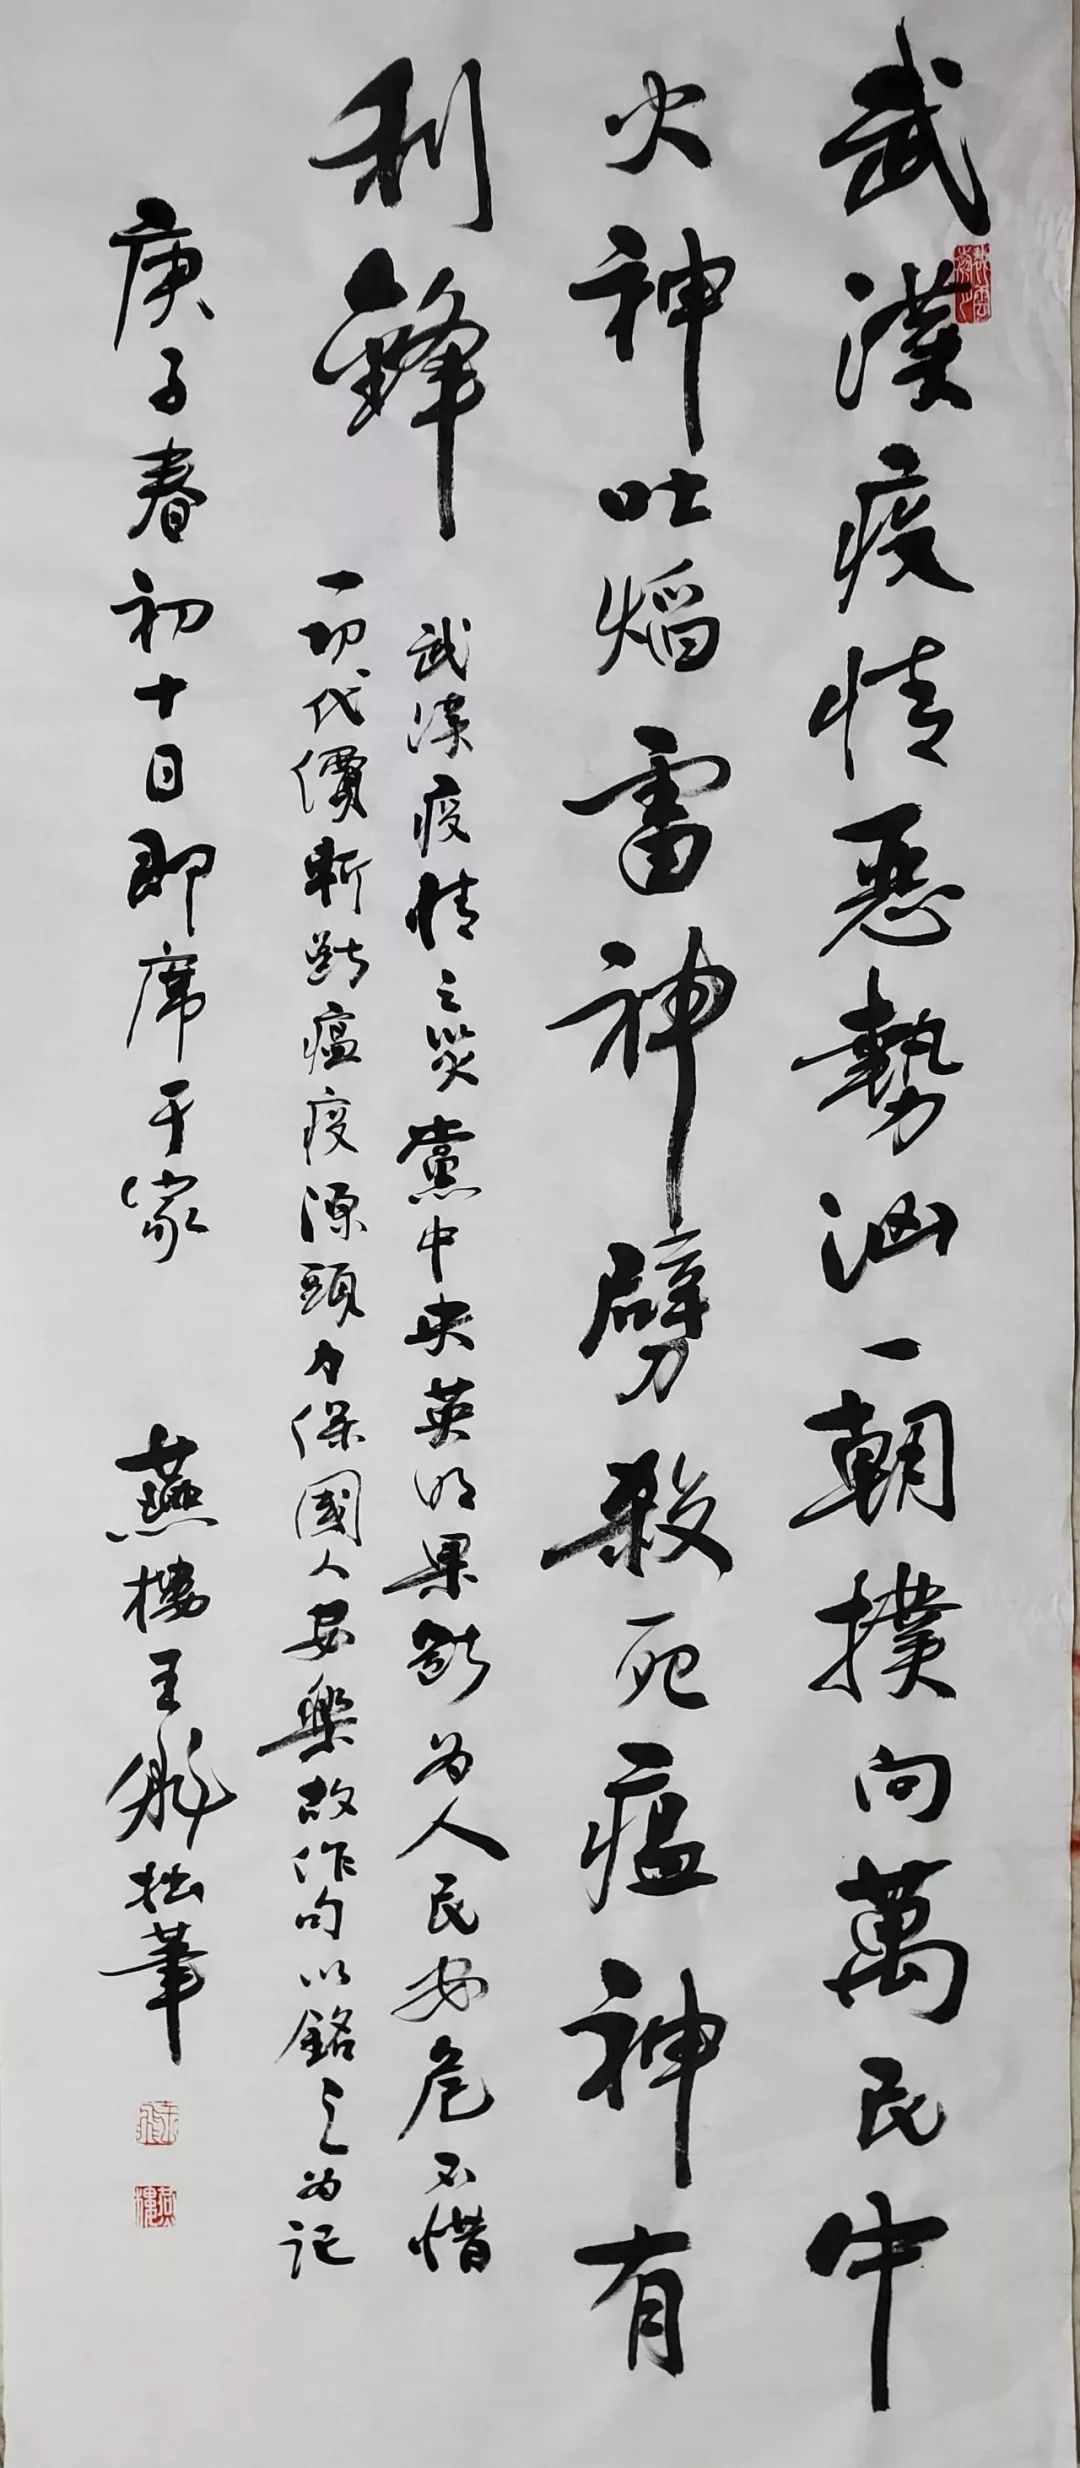 武漢疫情惡勢汹一朝撲向萬民中
火神吐焰雷神劈殺死瘟神有
利鋒
武漢疫情之災黨中央英明果斷为人民安危不惜
一切代價斬斷瘟疫源頭力保國人安樂故作句以銘之为記
庚子春初十日即席于家
燕樓王彪拙筆